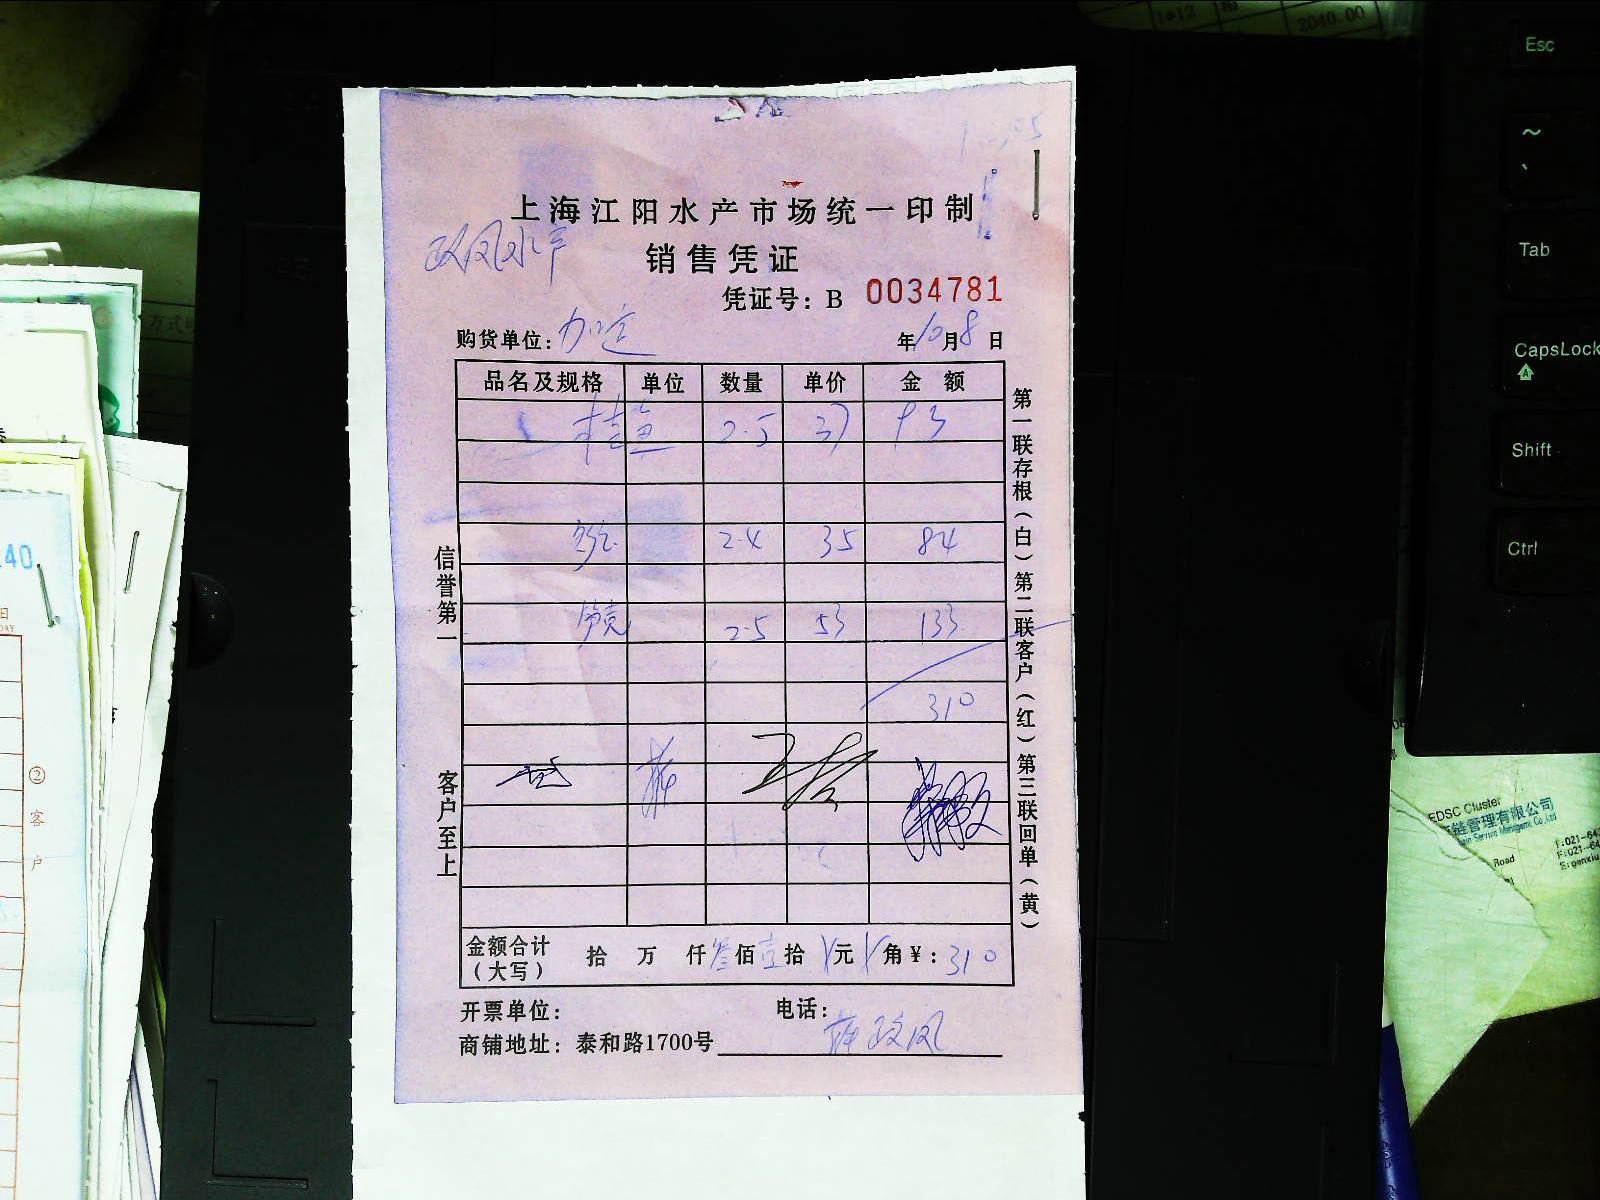 上海江阳水产市场统一印制
政凤水产
销售凭证
凭证号：B 0034781
购货单位：加运 年10月8日
品名及规格 单位 数量 单价 金额
桂鱼 2.5 37 93
2.4 35 84
笋壳 2.5 53 133
310
金额合计（大写） 拾 万 仟叁佰壹拾 元 角￥：310
开票单位： 电话：
商铺地址：泰和路1700号
信誉第一
客户至上
第一联存根（白）第二联客户（红）第三联回单（黄）
1*12
2040.00
Esc
~
Tab
CapsLock
Shift
Ctrl
40.
日
② 客户
EDSC Cluster
链管理有限公司
Road